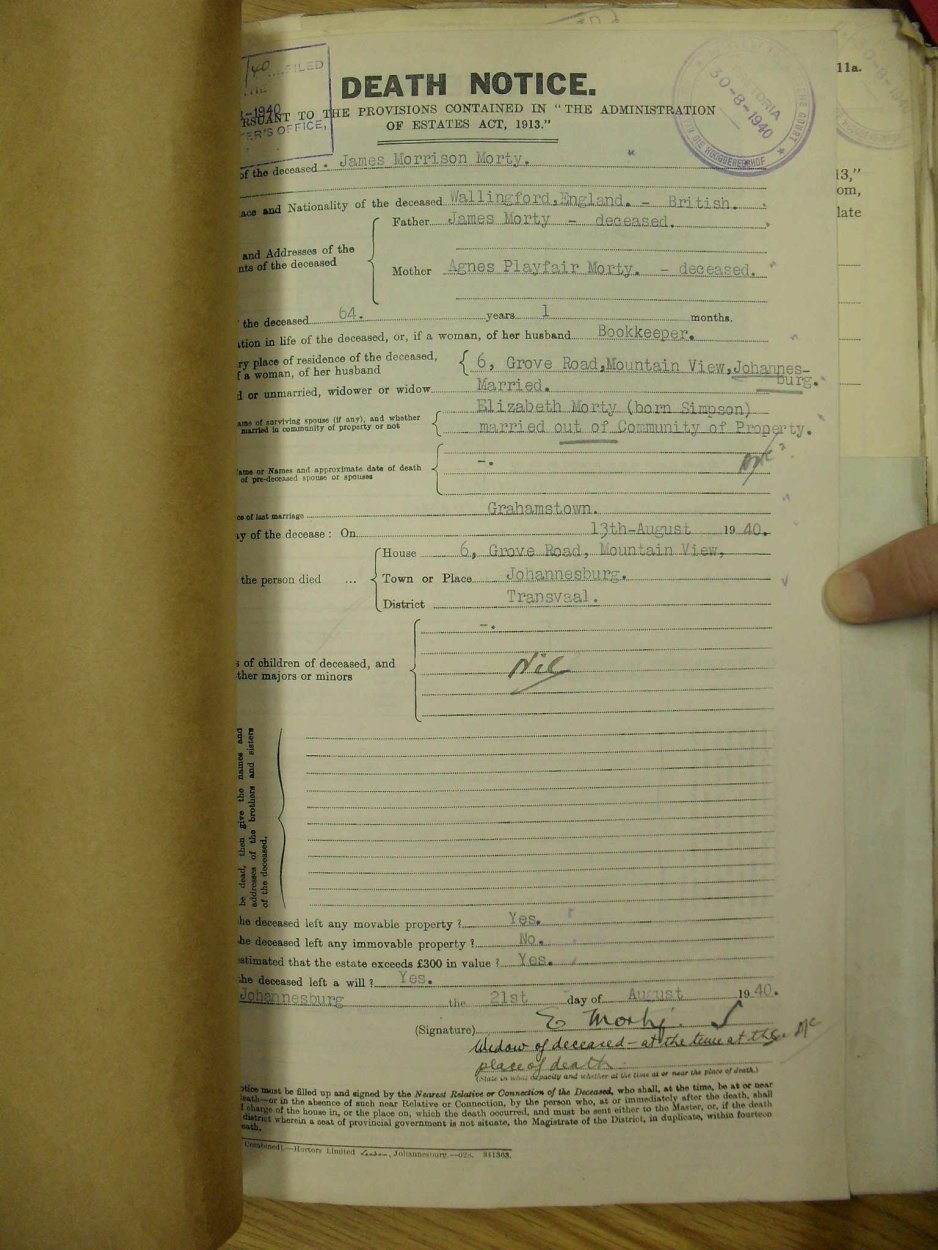 FILED
-1940
ER'S OFFICE,
30-8-1940
11a.
DEATH NOTICE.
RSUANT TO THE PROVISIONS CONTAINED IN "THE ADMINISTRATION
OF ESTATES ACT, 1913."
of the deceased James Morrison Morty.
13,"
om,
late
ace and Nationality of the deceased Wallingford,England. - British.
Father James Morty - deceased.
and Addresses of the
nts of the deceased
Mother Agnes Playfair Morty. - deceased.
the deceased 64. years 1 months.
ation in life of the deceased, or, if a woman, of her husband Bookkeeper.
ry place of residence of the deceased,
f a woman, of her husband
6, Grove Road,Mountain View,Johannes-
burg.
d or unmarried, widower or widow Married.
ame of surviving spouse (if any), and whether
married in community of property or not
Elizabeth Morty (born Simpson)
married out of Community of Property.
ame or Names and approximate date of death
of pre-deceased spouse or spouses
-.
ce of last marriage Grahamstown.
ay of the decease: On 13th-August 1940.
the person died ...
House 6, Grove Road, Mountain View,
Town or Place Johannesburg.
District Transvaal.
-.
s of children of deceased, and
ther majors or minors
Nil
be dead, then give the names and
addresses of the brothers and sisters
of the deceased.
he deceased left any movable property? Yes.
he deceased left any immovable property? No.
estimated that the estate exceeds £300 in value? Yes.
he deceased left a will? Yes.
Johannesburg the 21st day of August 1940.
(Signature) E Morty.
Widow of deceased - at the time at the
place of death
(State in what capacity and whether at the time at or near the place of death.)
otice must be filled up and signed by the Nearest Relative or Connection of the Deceased, who shall, at the time, be at or near
eath—or in the absence of such near Relative or Connection, by the person who, at or immediately after the death, shall
f charge of the house in, or the place on, which the death occurred, and must be sent either to the Master, or, if the death
district wherein a seat of provincial government is not situate, the Magistrate of the District, in duplicate, within fourteen
eath.
Combined).—Hortors Limited Johannesburg.—028. 341363.